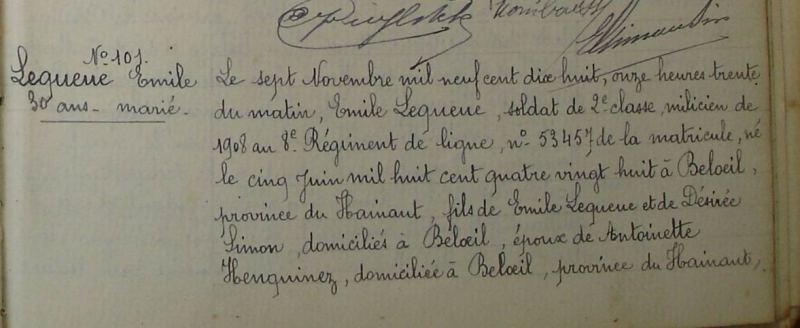 Nº 101.
Lequeue Emile
30 ans - marié.
Le sept Novembre mil neuf cent dix huit, onze heures trente
du matin, Emile Lequeue, soldat de 2e classe, milicien de
1908 au 8e Régiment de ligne, nº 53457 de la matricule, né
le cinq Juin mil huit cent quatre vingt huit à Beloeil,
province du Hainaut, fils de Emile Lequeue et de Désirée
Simon, domiciliés à Beloeil, époux de Antoinette
Henquinez, domiciliée à Beloeil, province du Hainaut,